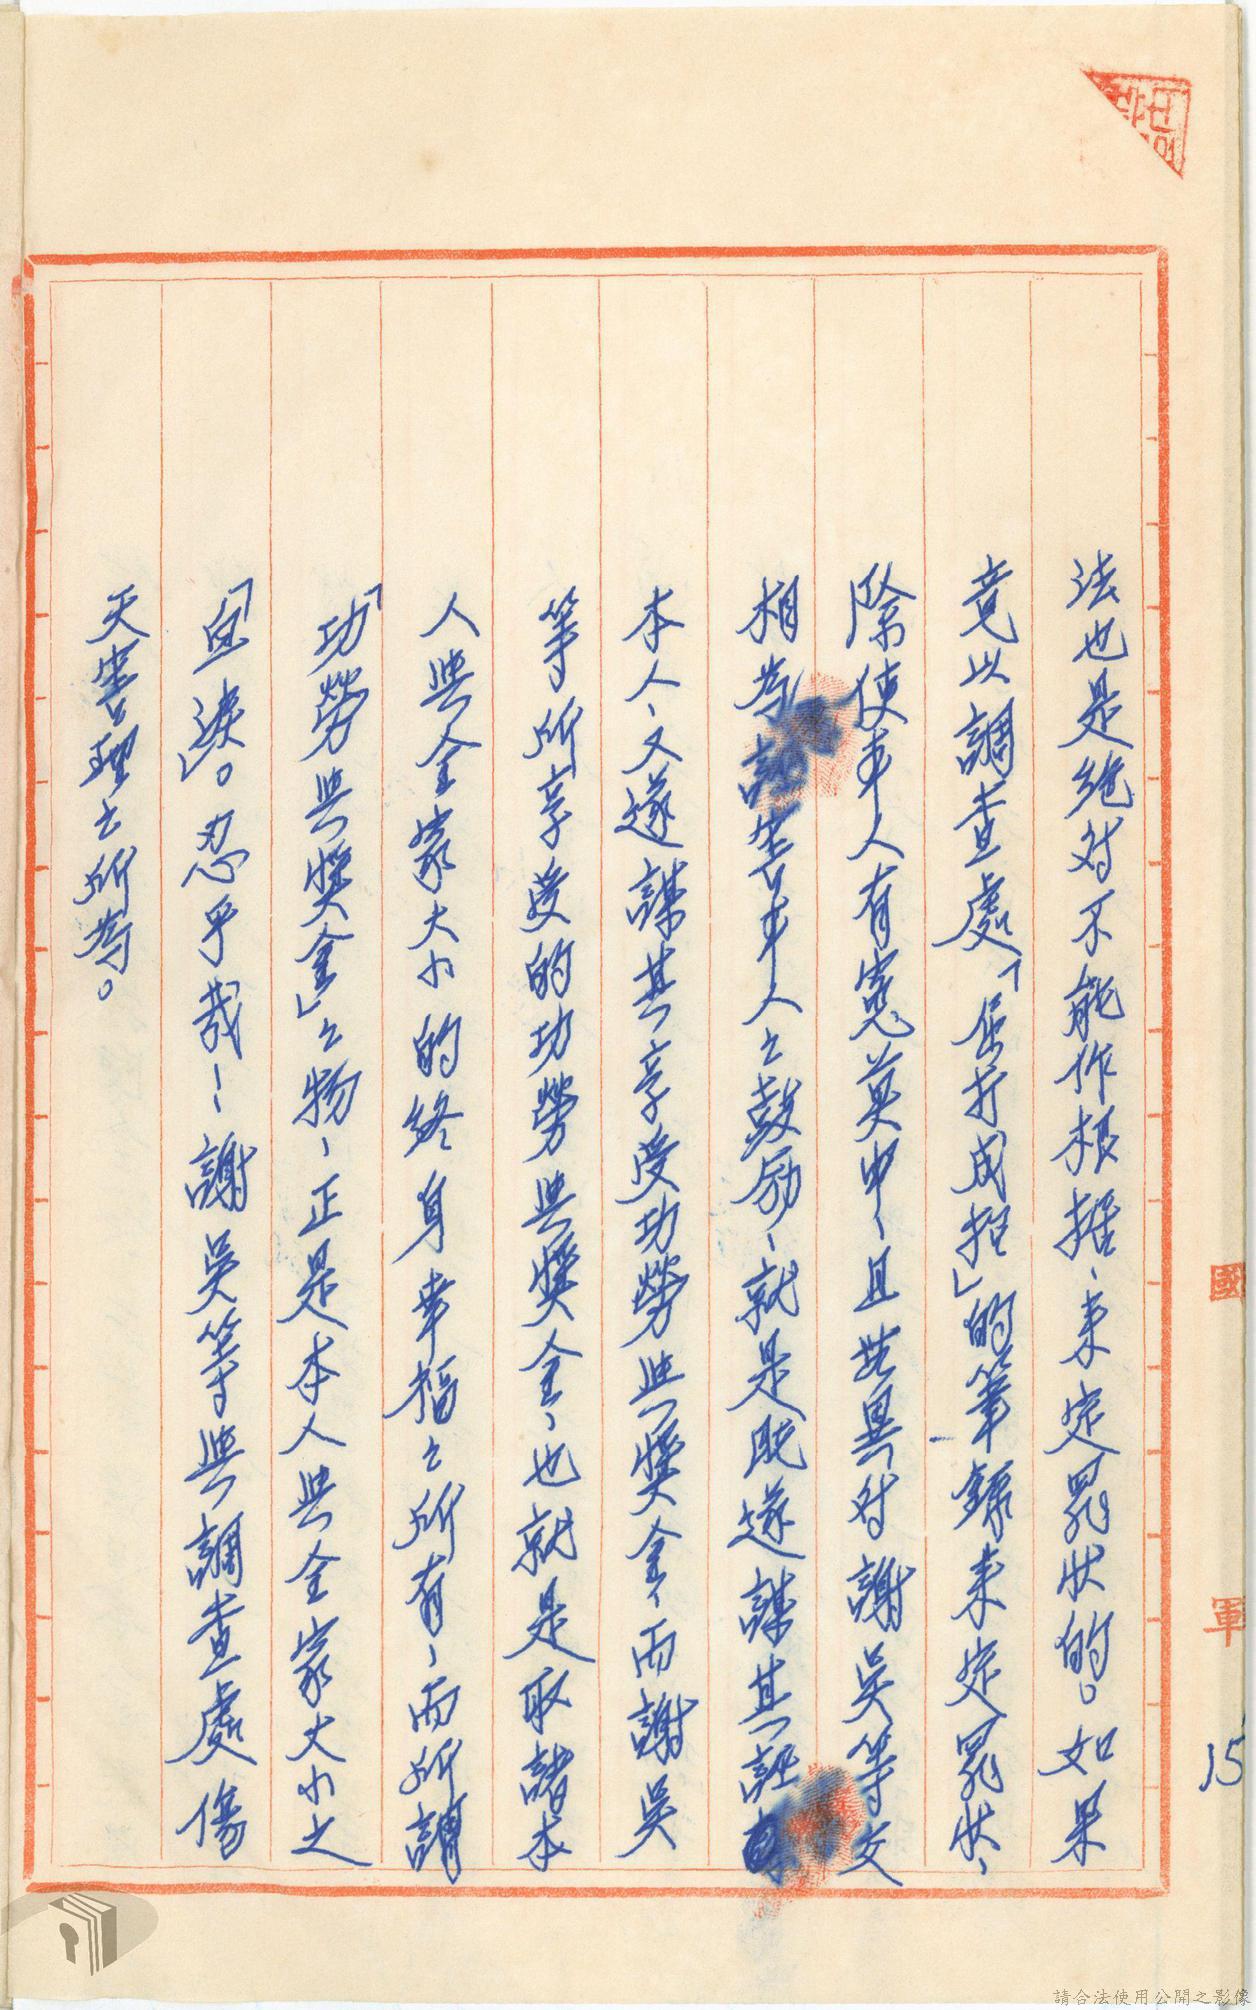 法也是絕对不能作根据、来定罪状的。如果
竟以調查處「屈打成招」的筆錄来定罪状、
除使本人有寃莫申、且無異对謝吳等文
相為誣害本人之鼓励、就是既遂謀其誣
本人、又遂謀其享受功勞與獎金、而謝吳
等所享受的功勞與獎金、也就是取諸本
人與全家大小的終身幸福之所有、而所謂
「功勞與獎金」之物、正是本人與全家大小之
「血淚」。忍乎哉！謝吳等與調查處傷
天害理之所為。
國
軍
15
請合法使用公開之影像